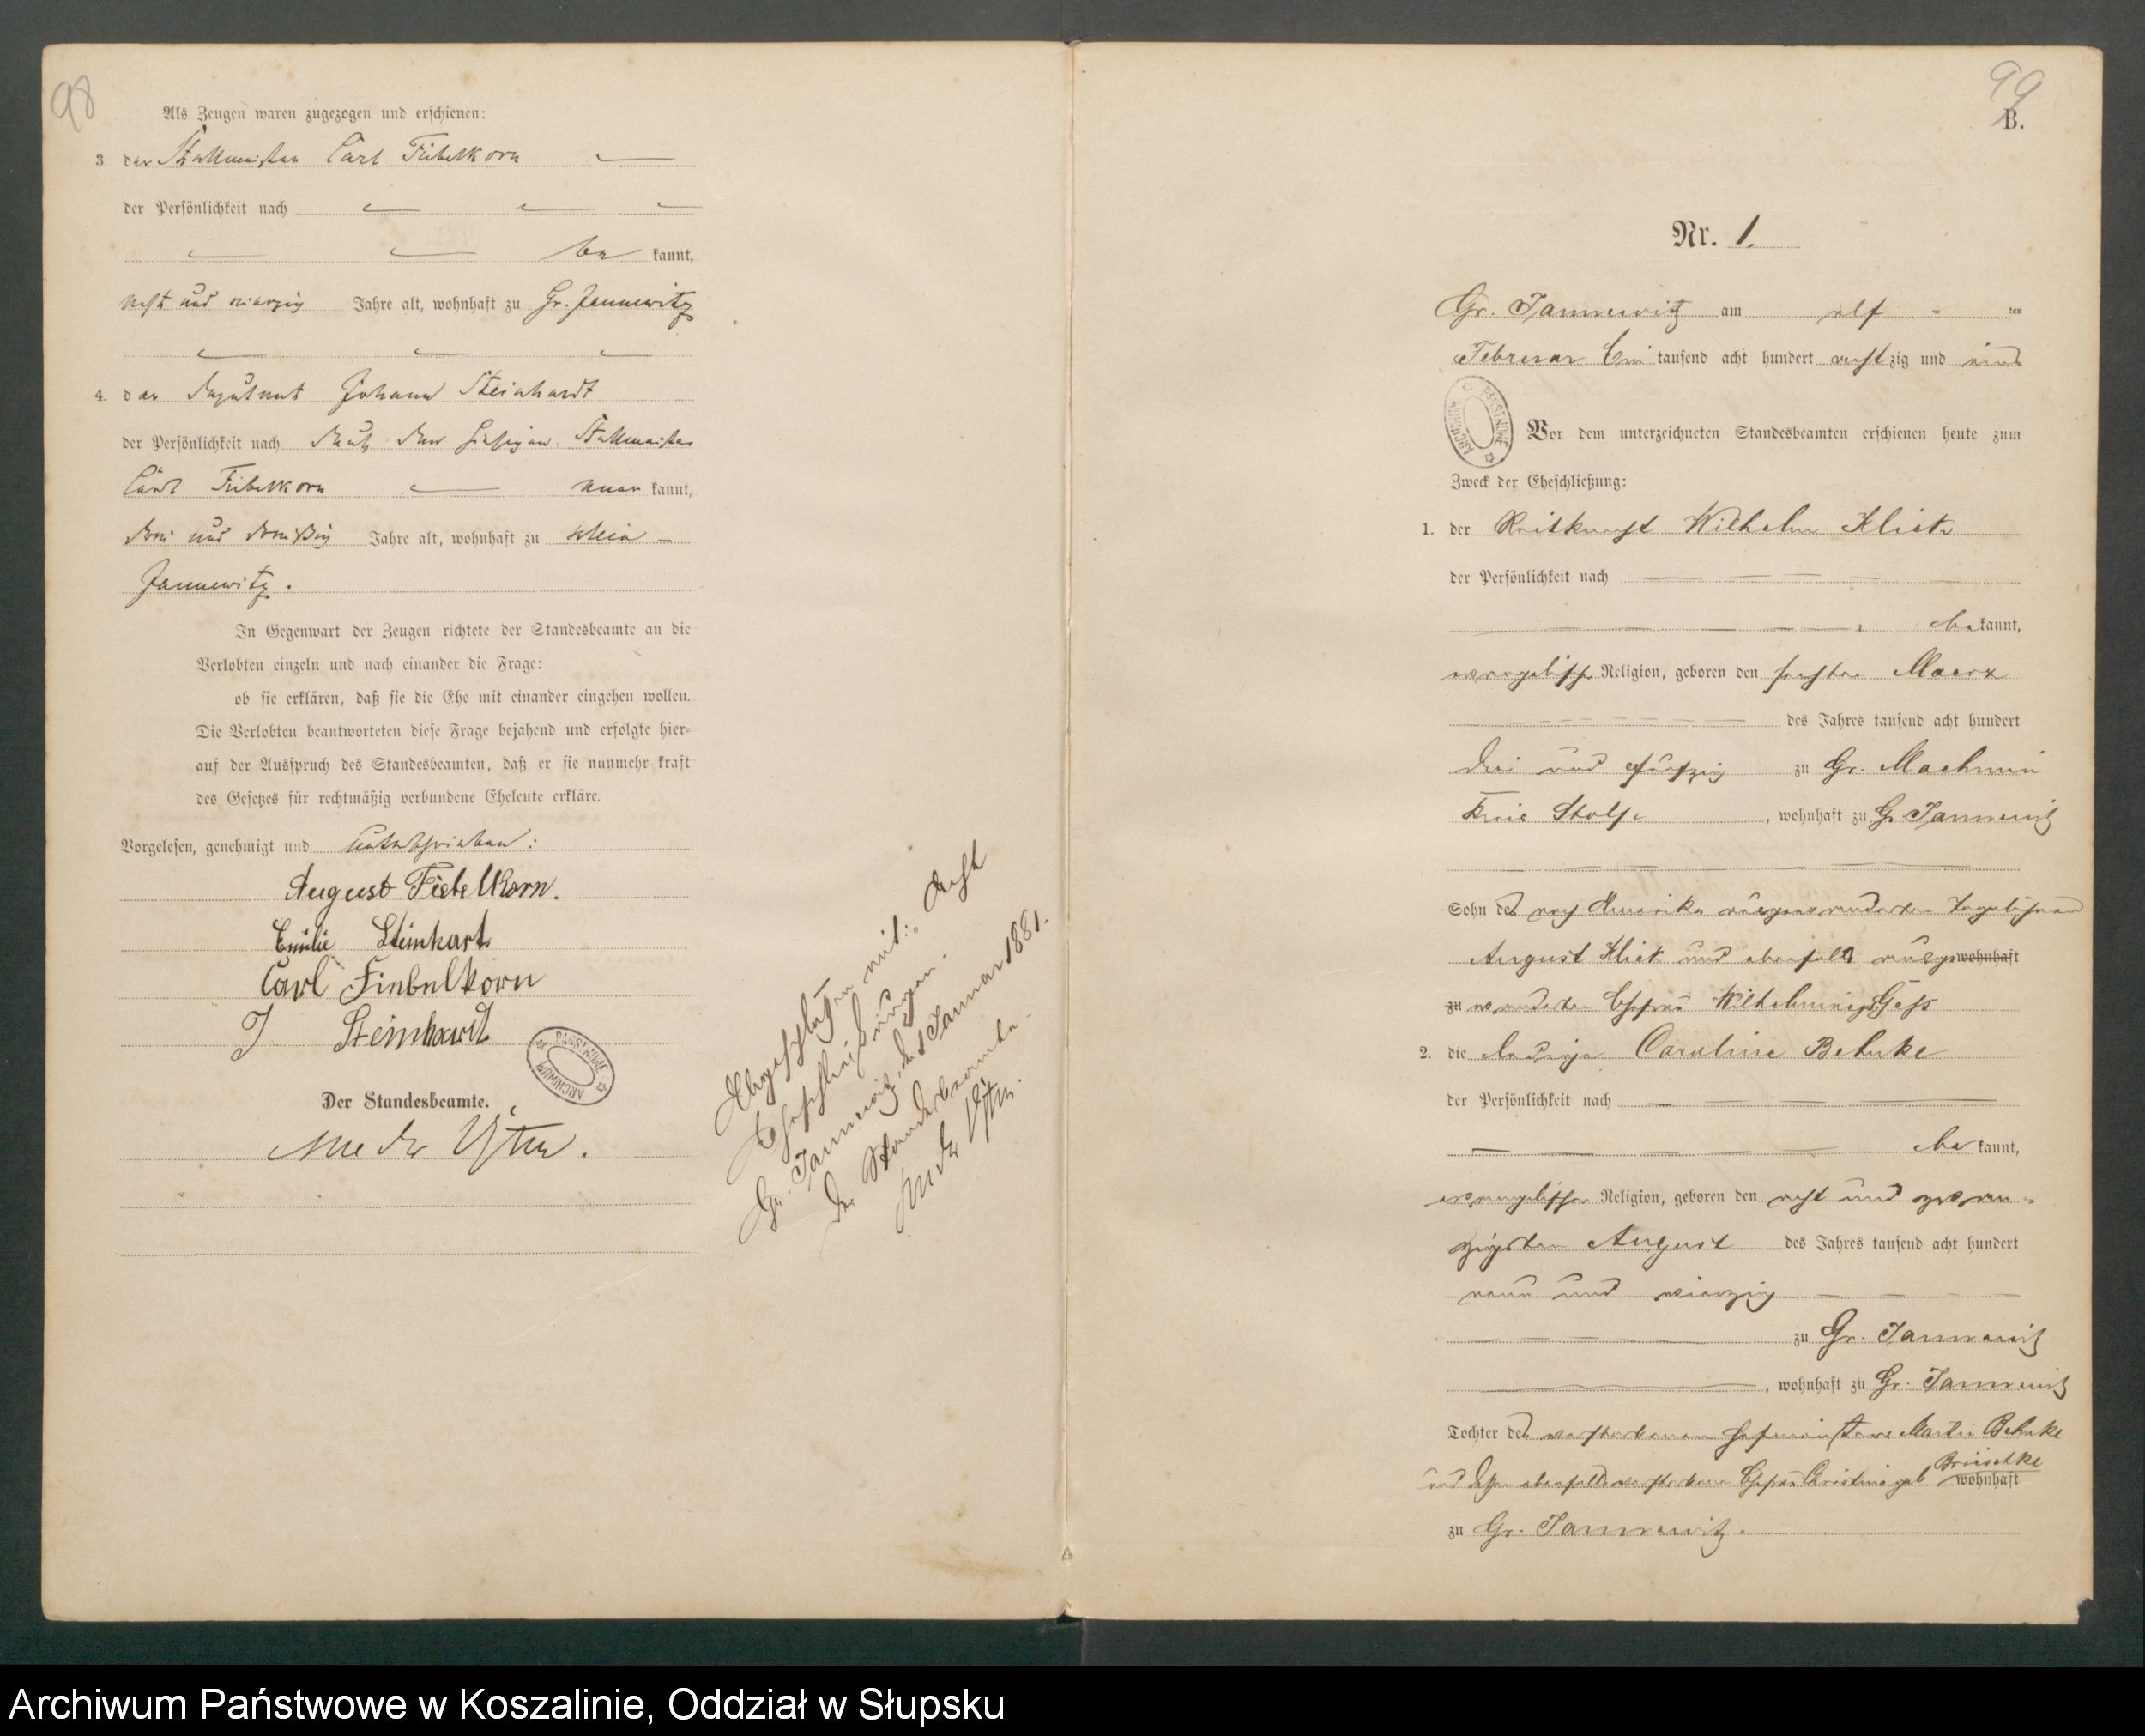 98
Als Zeugen waren zugezogen und erschienen:
3. der Stallmeister Carl Fiebelkorn
der Persönlichkeit nach
be kannt,
acht und vierzig Jahre alt, wohnhaft zu Gr. Jannewitz
4. der Deputant Johann Steinhardt
der Persönlichkeit nach durch den hiesigen Stallmeister
Carl Fiebelkorn aner kannt,
drei und dreißig Jahre alt, wohnhaft zu Klein-
Jannewitz.
In Gegenwart der Zeugen richtete der Standesbeamte an die
Verlobten einzeln und nach einander die Frage:
ob sie erklären, daß sie die Ehe mit einander eingehen wollen.
Die Verlobten beantworteten diese Frage bejahend und erfolgte hier-
auf der Ausspruch des Standesbeamten, daß er sie nunmehr kraft
des Gesetzes für rechtmäßig verbundene Eheleute erkläre.
Vorgelesen, genehmigt und unterschrieben:
August Fiebelkorn.
Emilie Steinhart
Carl Fiebelkorn
J Steinhardt
ARCHIWUM PAŃSTWOWE
Der Standesbeamte.
Abgeschlossen mit: acht
Eheschließungen.
Gr. Jannewitz, den 1 Januar 1881.
Der Standesbeamte.
99
B.
Nr. 1.
Gr. Jannewitz am elf ten
Februar Ein tausend acht hundert acht zig und eins
ARCHIWUM PAŃSTWOWE
Vor dem unterzeichneten Standesbeamten erschienen heute zum
Zweck der Eheschließung:
1. der Reitknecht Wilhelm Klick
der Persönlichkeit nach
be kannt,
evangelischer Religion, geboren den sechsten Maerz
des Jahres tausend acht hundert
drei und fünfzig zu Gr. Machmin
Kreis Stolp, wohnhaft zu Gr. Jannewitz
Sohn des nach Amerika ausgewanderten Tagelöhners
August Klick und ebenfalls ausge wohnhaft
zu wanderten Ehefrau Wilhelmine geb
2. die ledige Caroline Behnke
der Persönlichkeit nach
be kannt,
evangelischer Religion, geboren den acht und zwan-
zigsten August des Jahres tausend acht hundert
neun und vierzig
zu Gr. Jannewitz
, wohnhaft zu Gr. Jannewitz
Tochter des verstorbenen Hofmeisters Martin Behnke
und dessen ebenfalls verstorbene Ehefrau Christine geb Brieschke wohnhaft
zu Gr. Jannewitz.
Archiwum Państwowe w Koszalinie, Oddział w Słupsku